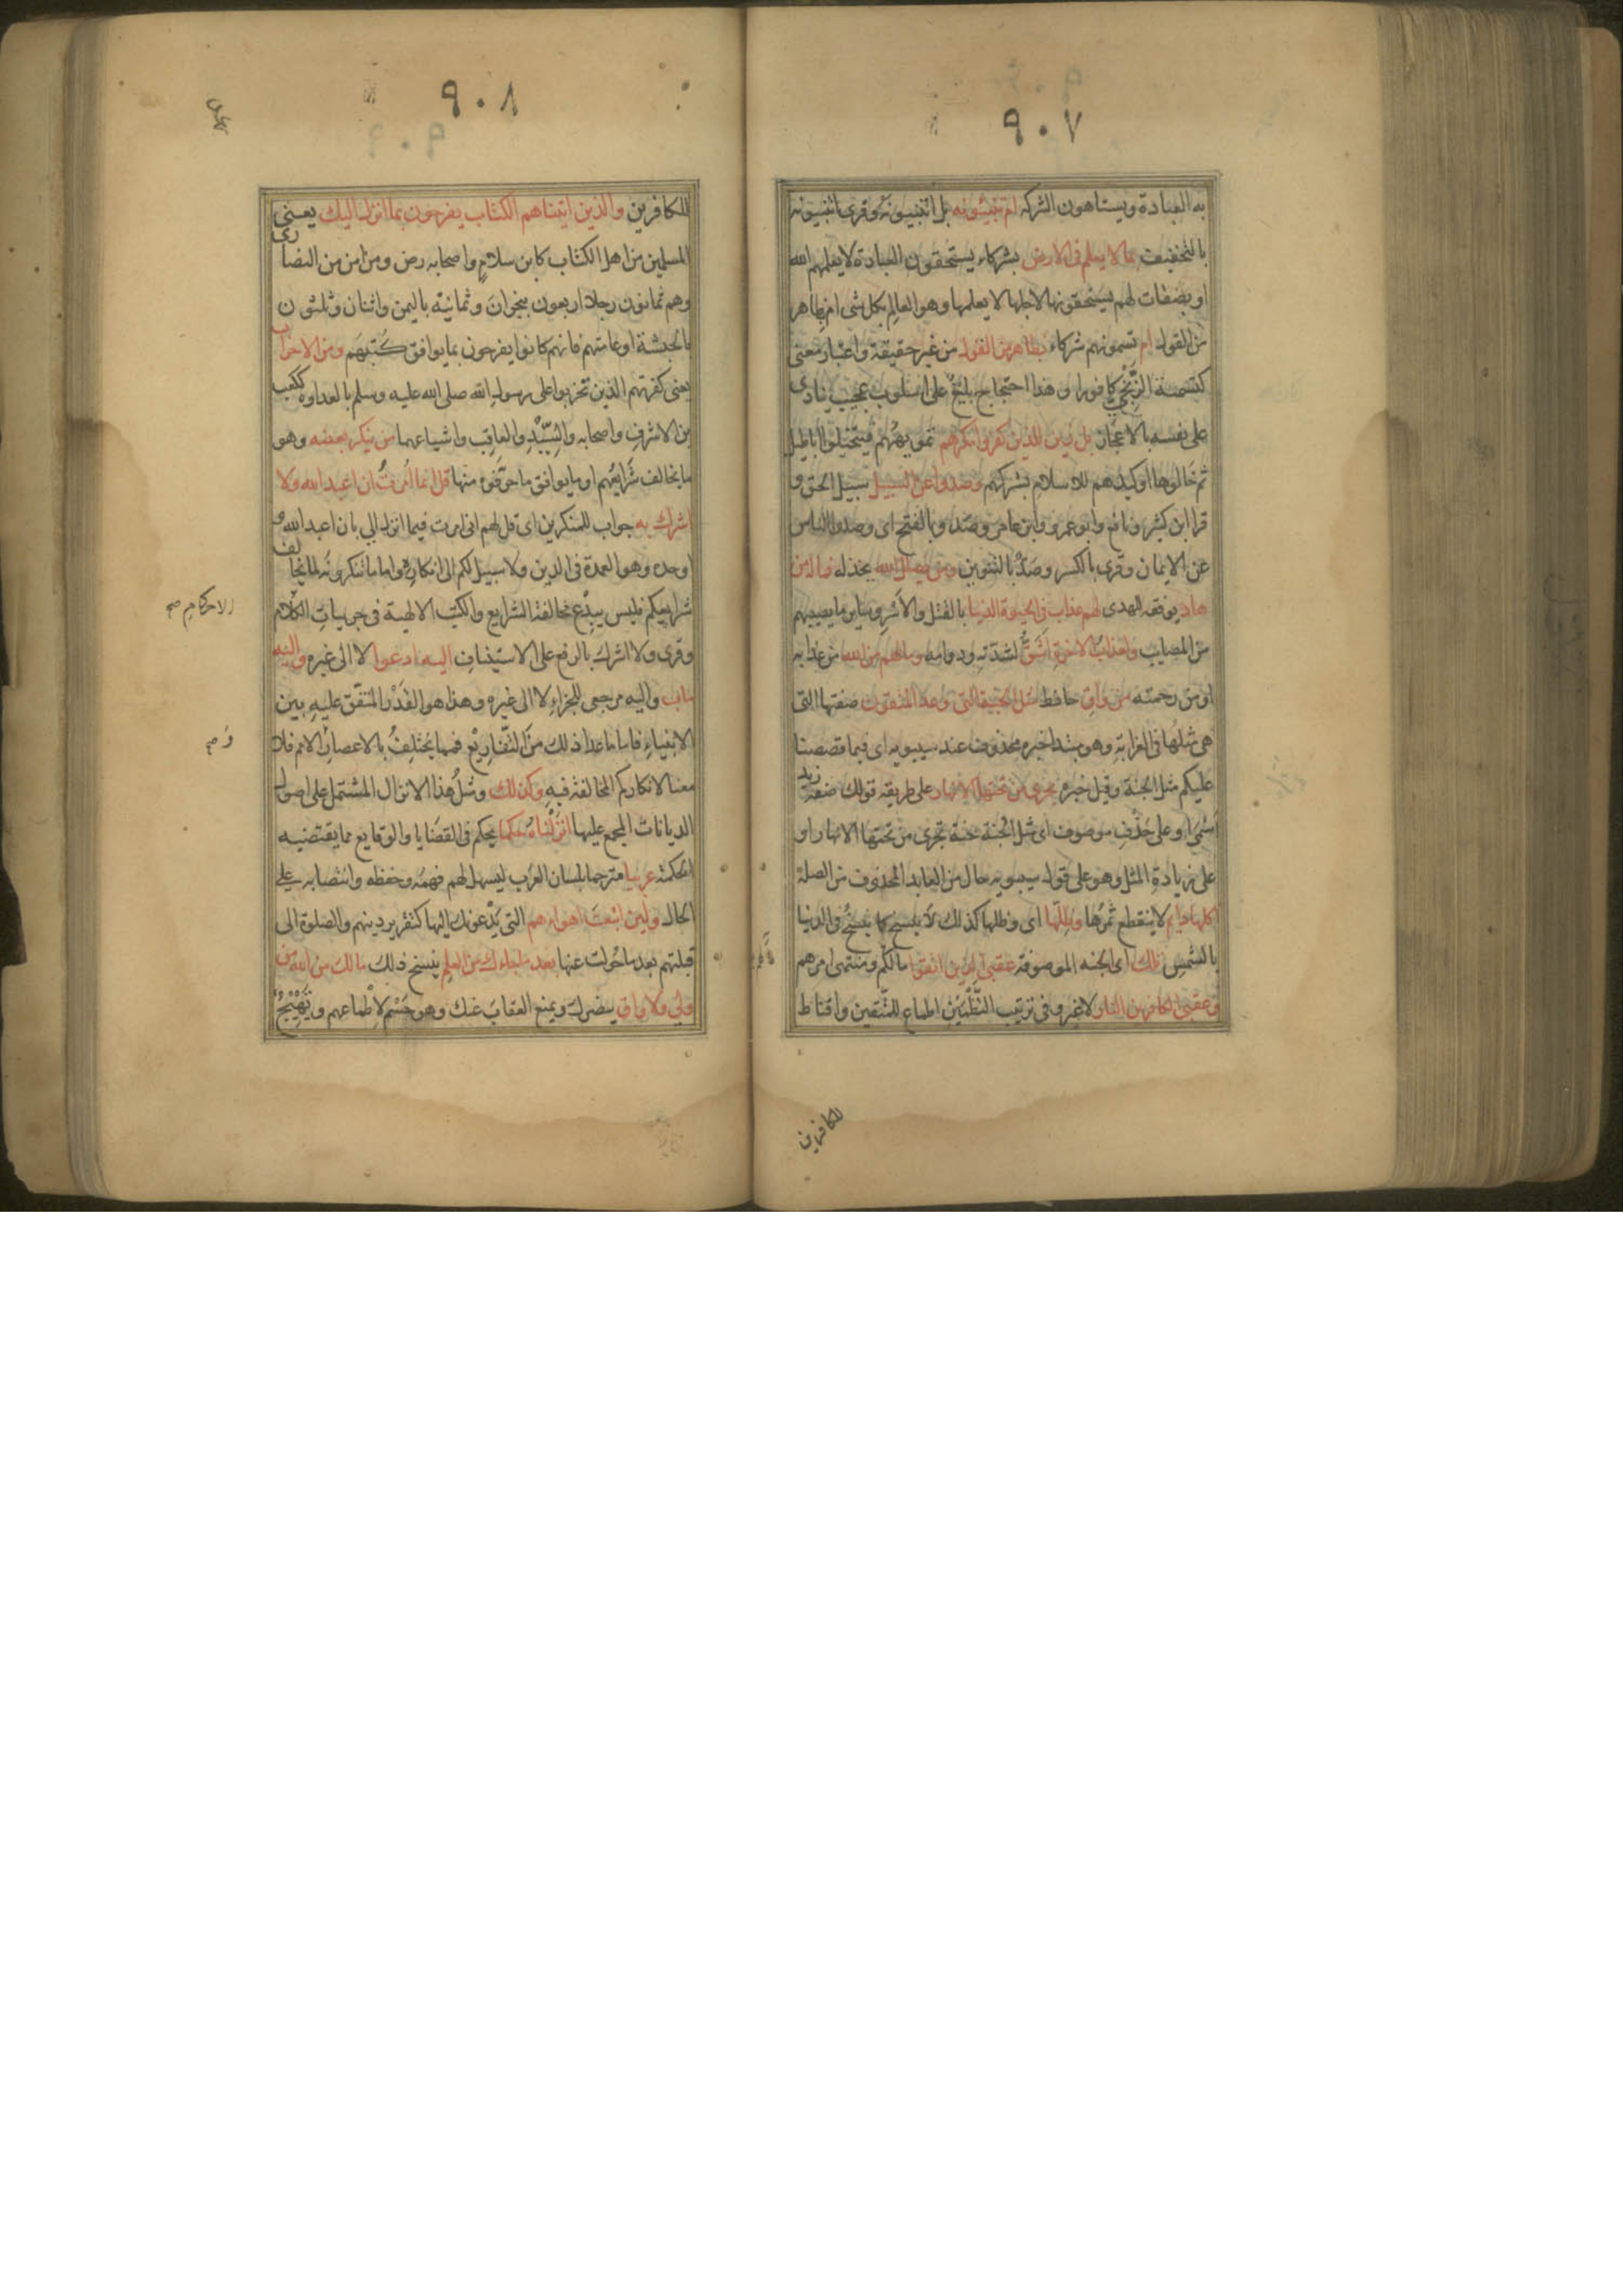 ٩٠٧
به العبادة ويستاهلون الشركة ام تنبئونه بل اتنبئونه وقرى اتنبئونه
بالتخفيف بما لا يعلم فى الارض بشركاء يستحقون العبادة لا يعلمهم الله
او بصفات لهم يستحقونها لاجلها لا يعلمها وهو العالم بكل شى ام بظاهر
من القول ام تسمونهم شركاء بظاهر من القول من غير حقيقة واعتبار معنى
كتسمية الزنجى كافورا وهذا احتجاج بليغ على اسلوب عجيب ينادى
على نفسه بالاعجاز بل زين للذين كفروا مكرهم تمويههم فتخيلوا اباطيل
ثم خالوها او كيدهم للاسلام بشركهم وصدوا عن السبيل سبيل الحق و
قرا ابن كثير ونافع وابو عمرو وابن عامر وصدوا بالفتح اى وصدوا الناس
عن الايمان وقرى بالكسر وصد بالتنوين ومن يضلل الله يخذله فما له من
هاد يوفقه للهدى لهم عذاب فى الحيوة الدنيا بالقتل والاسر وساير ما يصيبهم
من المصايب ولعذاب الاخرة اشق لشدته ودوامه وما لهم من الله من عذابه
او من رحمته من واق حافظ مثل الجنة التى وعد المتقون صفتها التى
هى مثلها فى الغرابة وهو مبتدا خبره محذوف عند سيبويه اى فيما قصصنا
عليكم مثل الجنة وقيل خبره تجرى من تحتها الانهار على طريقة قولك صفة زيد
اسمر او على حذف موصوف اى مثل الجنة جنة تجرى من تحتها الانهار او
على زيادة المثل وهو على قول سيبويه حال من العايد المحذوف من الصلة
اكلها دايم لا ينقطع ثمرها وظلها اى وظلها كذلك لا ينسخ كما ينسخ فى الدنيا
بالشمس تلك اى الجنه الموصوفة عقبى الذين اتقوا مالهم ومنتهى امرهم
وعقبى الكافرين النار لا غير وفى ترتيب النظمين اطماع للمتقين واقناط
للكافرين
٩٠٨
للكافرين والذين اتيناهم الكتاب يفرحون بما انزل اليك يعنى
المسلمين من اهل الكتاب كابن سلام واصحابه رض ومن امن من النصارى
وهم ثمانون رجلا اربعون بنجران وثمانية باليمن واثنان وثلثون
بالحبشة او عامتهم فانهم كانوا يفرحون بما يوافق كتبهم ومن الاحزاب
يعنى كفرتهم الذين تحزبوا على رسول الله صلى الله عليه وسلم بالعداوة ككعب
بن الاشرف واصحابه والسيد والعاقب واشياعهما من ينكر بعضه وهو
ما يخالف شرايعهم او ما يوافق ما حرفوه منها قل انما امرت ان اعبد الله ولا
اشرك به جواب للمنكرين اى قل لهم انى امرت فيما انزل الى بان اعبد الله و
اوحده وهو العمدة فى الدين ولا سبيل لكم الى انكاره واما ما تنكرونه لما يخالف
شرايعكم فليس ببدع مخالفة الشرايع والكتب الالهية فى جزييات الكلام
وقرى ولا اشرك بالرفع على الاستيناف اليه ادعوا لا الى غيره واليه
ماب واليه مرجعى للجزاء لا الى غيره وهذا هو القدر المتفق عليه بين
الانبياء فاما ما عدا ذلك من التفاريع فمما يختلف بالاعصار الامم فلا
معنا لانكاركم المخالفة فيه وكذلك ومثل هذا الانزال المشتمل على اصول
الديانات المجمع عليها انزلناه حكما يحكم فى القضايا والوقايع بما يقتضيه
الحكمة عربيا مترجما بلسان العرب ليسهل لهم فهمه وحفظه وانتصابه على
الحال ولين اتبعت اهواءهم التى يدعونك اليها كتقرير دينهم والصلوة الى
قبلتهم بعد ما حولت عنها بعد ما جاءك من العلم بنسخ ذلك مالك من الله من
ولى ولا واق ينصرك ويمنع العقاب عنك وهو حسم لاطماعهم وتهييج
الاحكام صح
و صح